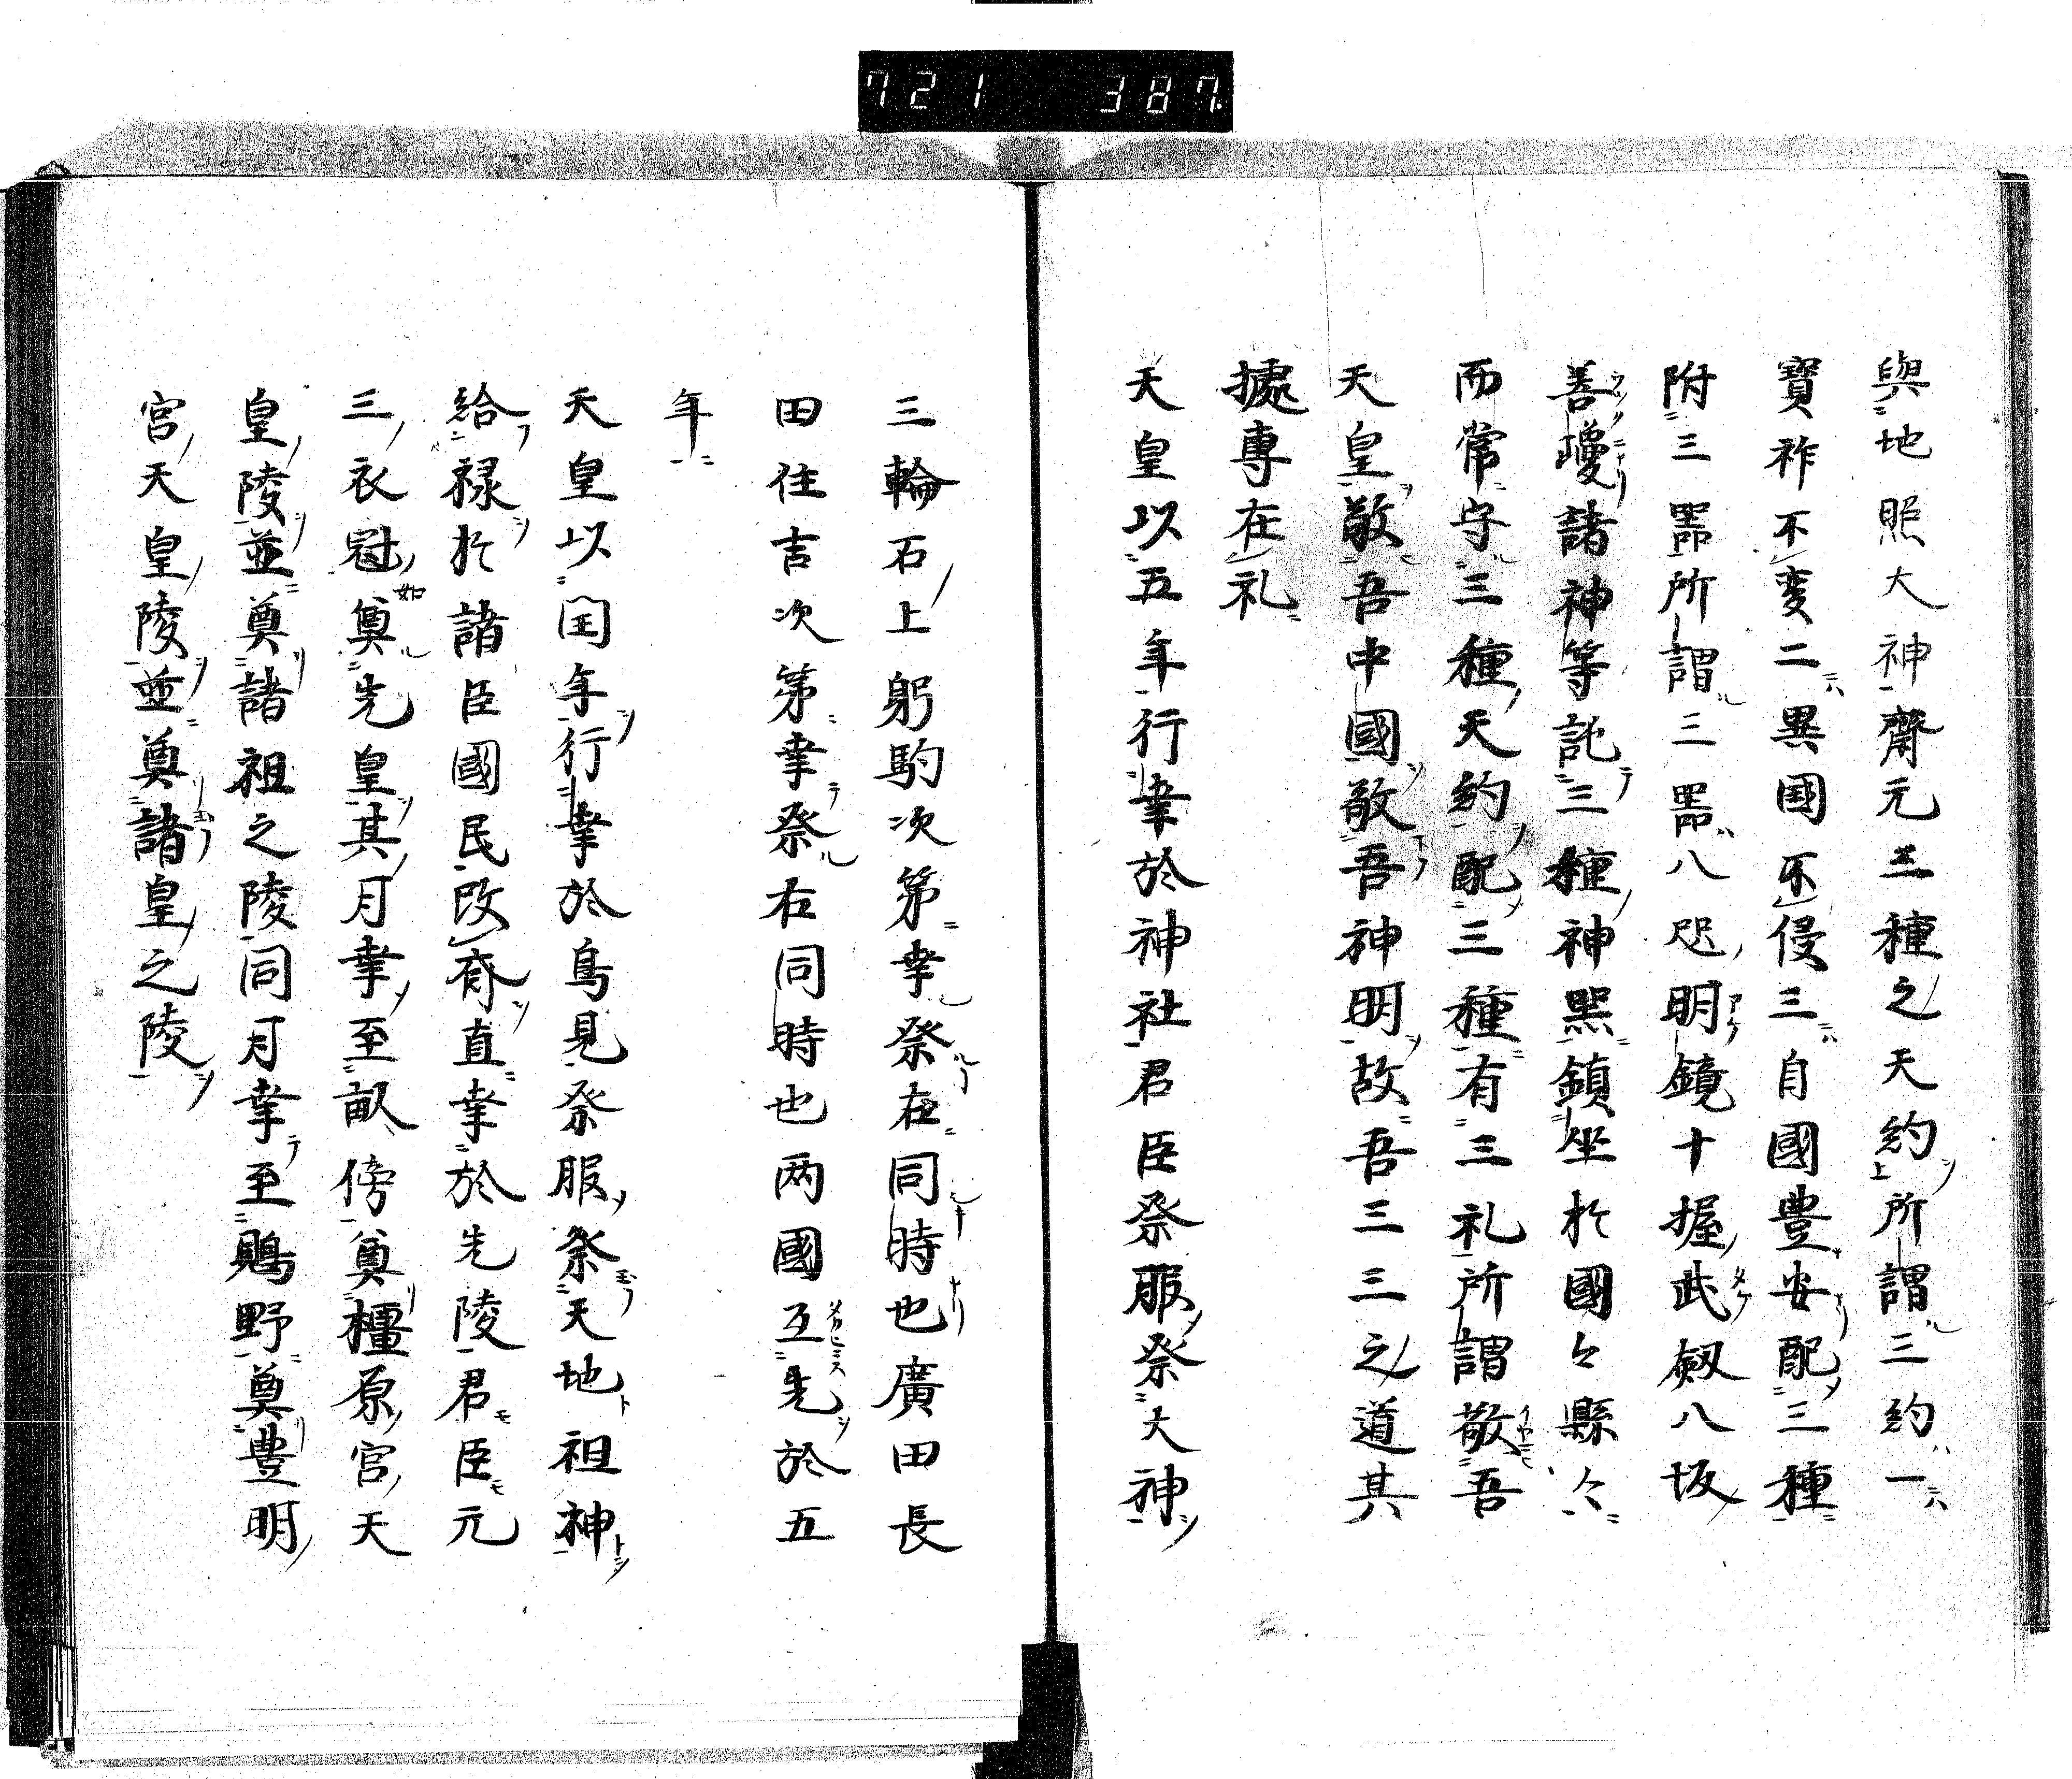 721 387
與地照大神齋元三種之天約所謂三約一
寶祚不変二異国不侵三自國豊安配三種
附三噐所謂三噐八咫明鏡十握武劔八坂
善瓊諸神等託三種神噐鎮坐於國々縣々
而常守三種天約配三種有三礼所謂敬吾
天皇敬吾中國敬吾神明故吾三三之道其
據専在礼
天皇以五年行幸於神社君臣祭服祭大神
三輪石上躬駒次第幸祭在同時也廣田長
田住吉次第幸祭右同時也两國互先於五
年
天皇以閏年行幸於鳥見祭服祭天地祖神
給禄於諸臣國民改齊直幸於先陵君臣元
三衣冠奠先皇其月幸至畝傍奠橿原宮天
皇陵並奠諸祖之陵同月幸至鵙野奠豊明
宮天皇陵並奠諸皇之陵